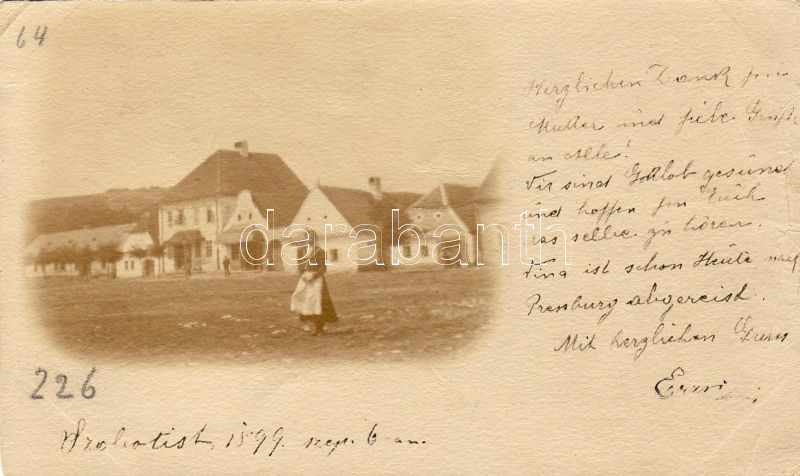 64
Herzlichen Dank für
Mutter und viele Grüße
an Alle!
Wir sind Gottlob gesund
und hoffen von Euch
das selbe zu hören.
Tina ist schon Heute nach
Presburg abgereist.
Mit herzlichen Gruss
226
Szobotist, 1899. szep. 6-án.
darabanth.com